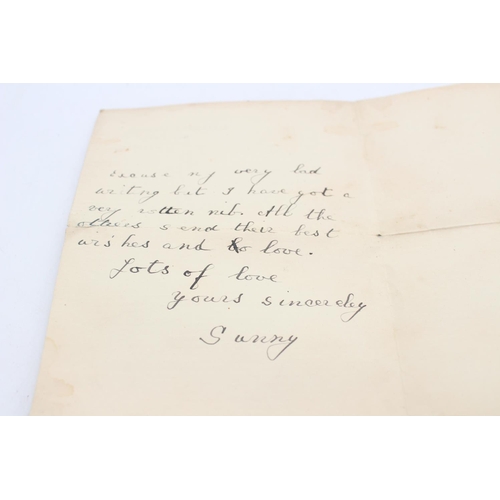 excuse my very bad
writing but I have got a
very rotten nib. All the
others send their best
wishes and love.
Lots of love
yours sincerely
Sunny